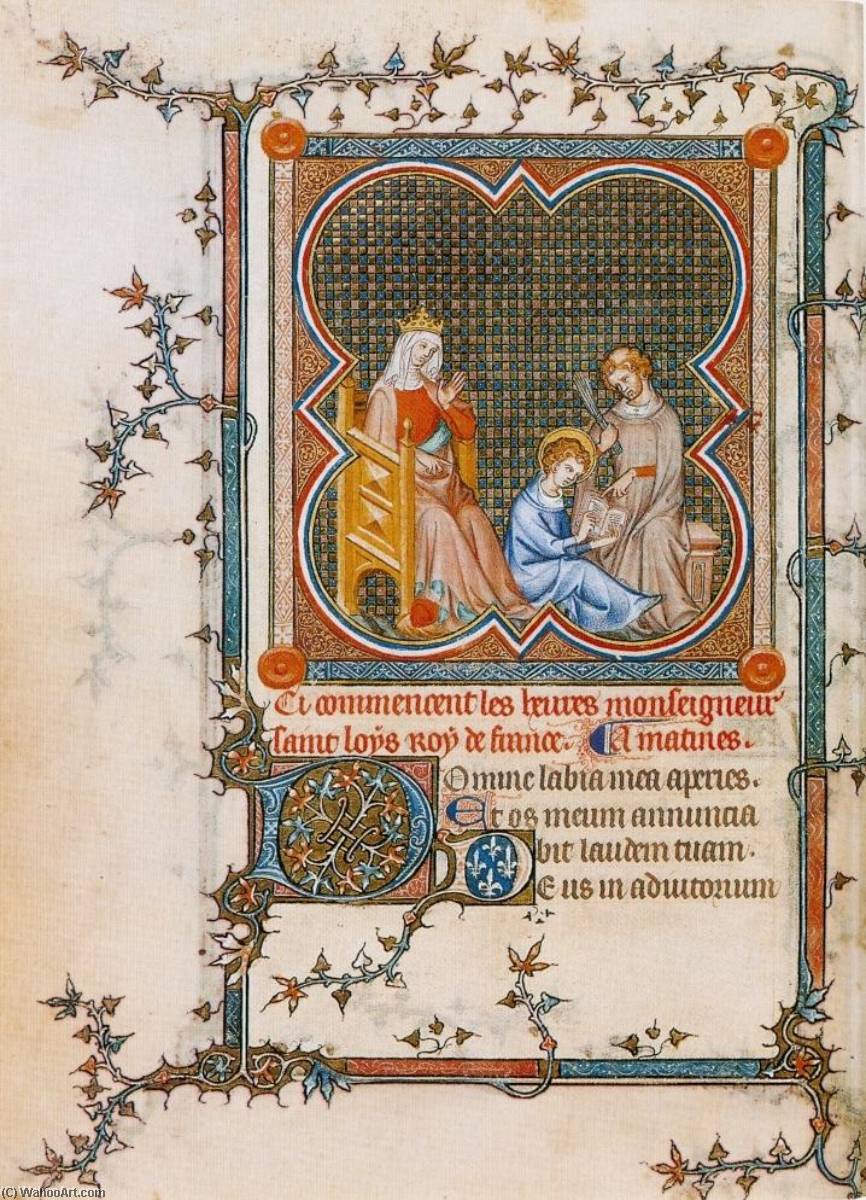 Ci commencent les heures monseigneur
saint loÿs roÿ de france. A matines.
Domine labia mea aperies.
Et os meum annuncia
bit laudem tuam.
Deus in adiutorium
(C) WahooArt.com